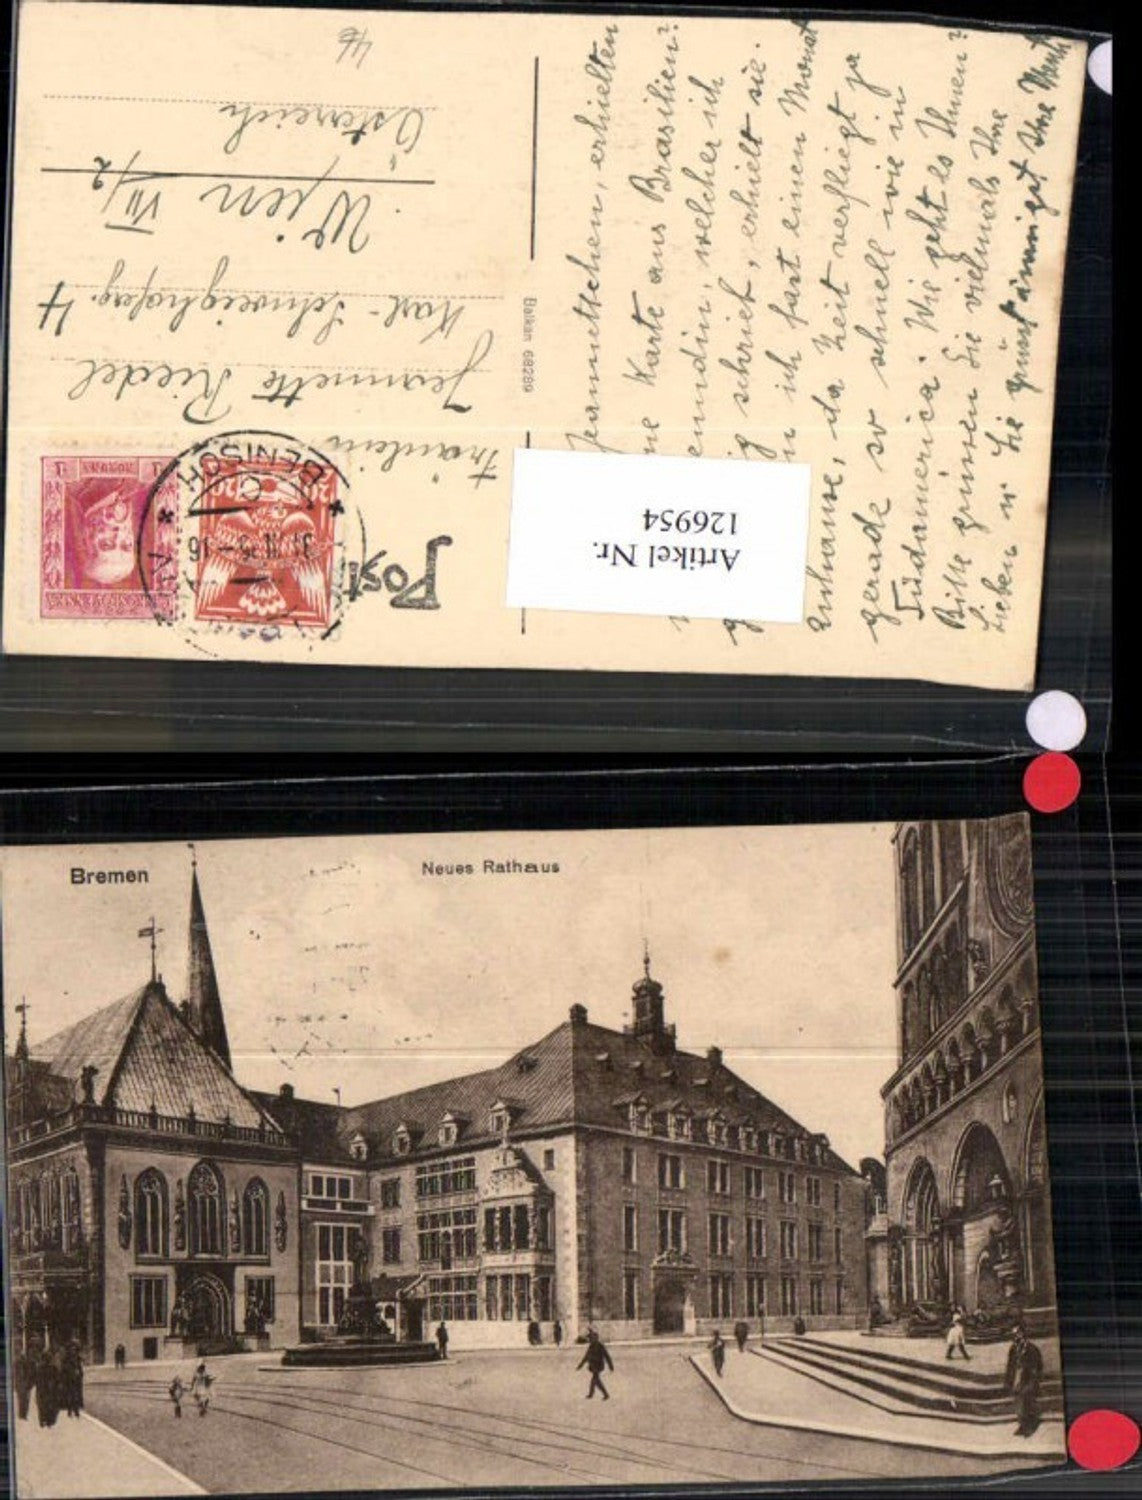 46
Jeannettchen, erhielten
ne Karte aus Brasilien?
welcher ich
schrieb, erhielt sie.
ich fast einen Monat
zuhause, da Zeit verfliegt ja
gerade so schnell wie in
Südamerica. Wie geht es Ihnen?
Bitte grüssen Sie vielmals Ihre
Lieben u. Sie grüsst innigst Ihre
Balkan 68289
Postk
Fräulein
Jeannette Riedel
Karl-Schweighoferg. 4
Wien VII/2
Österreich
BENISCH
31 III 35-16
Artikel Nr.
126954
Bremen
Neues Rathaus